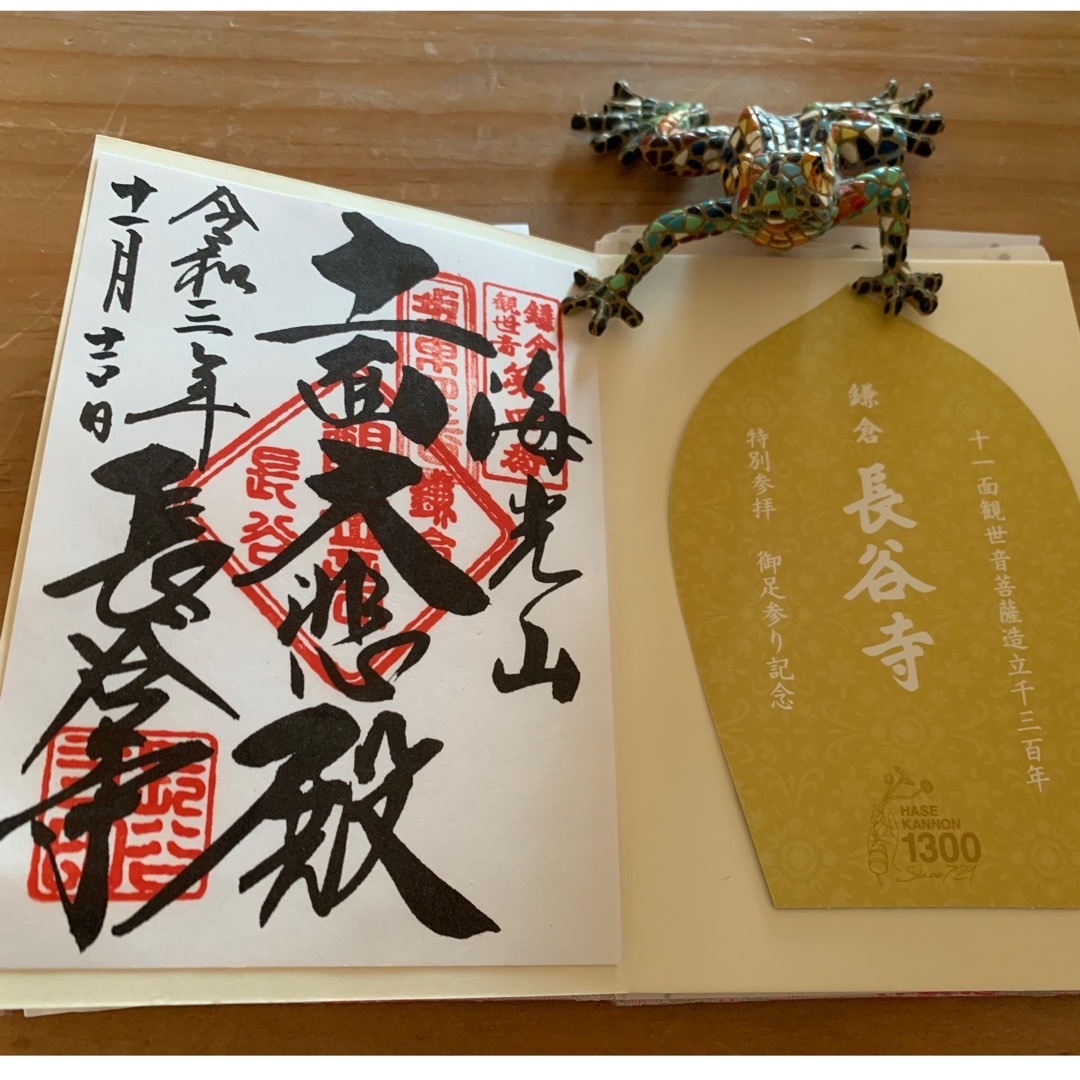 海光山
十一面大悲殿
長谷寺
令和三年
十一月吉日
鎌倉
観世音
第四番
長谷
十一面観世音菩薩造立千三百年
鎌倉 長谷寺
特別参拝 御足参り記念
HASE
KANNON
1300
Since 721